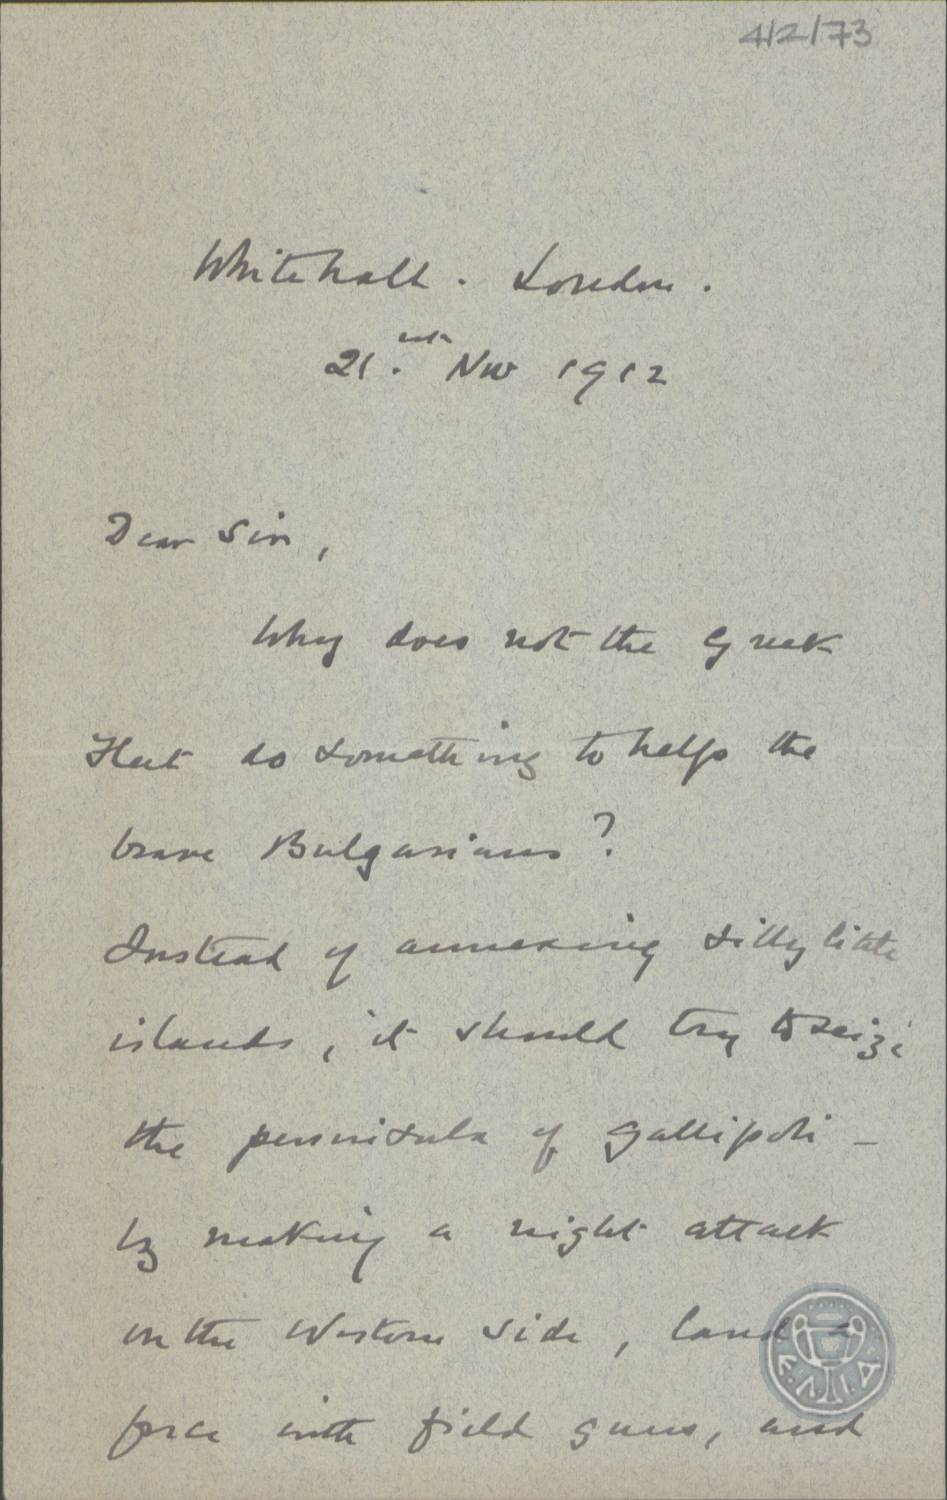 4/2/73
Whitehall. London.
21.st Nov 1912
Dear Sir,
Why does not the Greek
Fleet do something to help the
brave Bulgarians?
Instead of annexing silly little
islands, it should try to seize
the peninsula of Gallipoli -
by making a night attack
on the Western side, land a
force with field guns, and